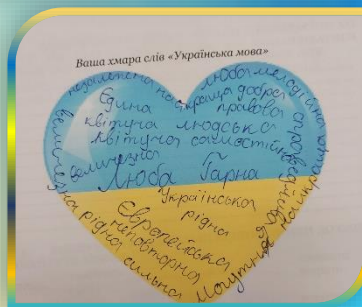 Ваша хмара слів «Українська мова»
незалежна найкраща добра
люба мелодійна
Єдина
правова
квітуча людська
квітуча самостійна
величезна
Люба Гарна
Українська
рідна
Європейська
неповторна
рідна сильна
могутня
найкраща